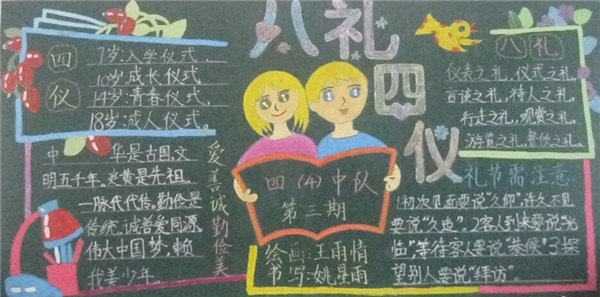 八礼四仪
四仪
7岁:入学仪式。
10岁成长仪式
14岁:青春仪式。
18岁:成人仪式。
中华是古国,文
明五千年。炎黄是先祖,
一脉代代传。勤俭是
传统,诚善爱同源。
伟大中国梦,赖
我美少年。
爱善诚勤俭美
四(4)中队
第三期
绘画:王雨情
书写:姚星雨
八礼
仪表之礼,仪式之礼,
言谈之礼,待人之礼,
行走之礼,观赏之礼,
游览之礼,餐饮之礼。
礼节需注意
1初次见面要说“久仰”,许久不见
要说“久违”,2客人到来要说“光
临”,等待客人要说“恭候”3.探
望别人要说“拜访”。